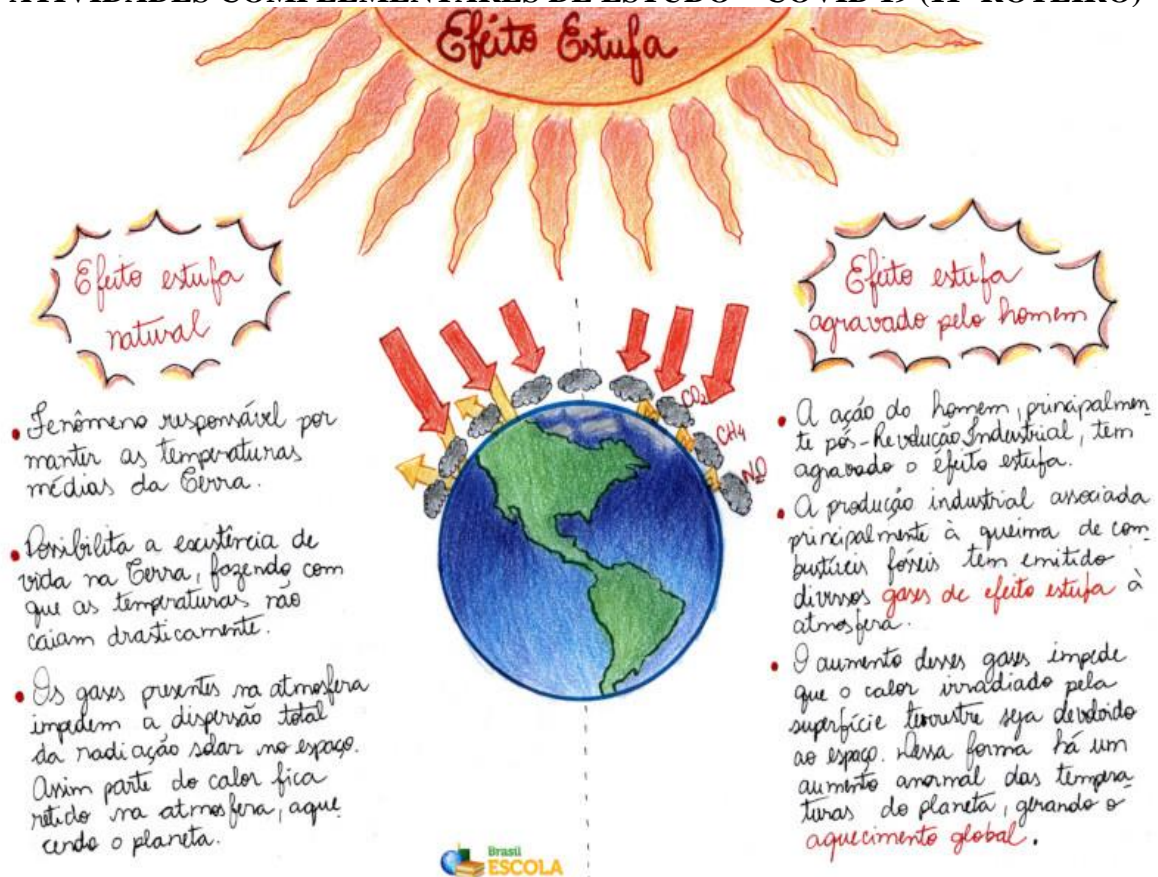 ATIVIDADES COMPLEMENTARES DE ESTUDO – COVID 19 (11º ROTEIRO)
Efeito Estufa
Efeito estufa
natural
• Fenômeno responsável por
manter as temperaturas
médias da Terra.
• Possibilita a existência de
vida na Terra, fazendo com
que as temperaturas não
caiam drasticamente.
• Os gases presentes na atmosfera
impedem a dispersão total
da radiação solar no espaço.
Assim parte do calor fica
retido na atmosfera, aque
cendo o planeta.
CO₂
CH₄
N₂O
Efeito estufa
agravado pelo homem
• A ação do homem, principalmen
te pós-Revolução Industrial, tem
agravado o efeito estufa.
• A produção industrial associada
principalmente à queima de com
bustíveis fósseis tem emitido
diversos gases de efeito estufa à
atmosfera.
• O aumento desses gases impede
que o calor irradiado pela
superfície terrestre seja devolvido
ao espaço. Dessa forma há um
aumento anormal das tempera
turas do planeta, gerando o
aquecimento global.
Brasil
ESCOLA